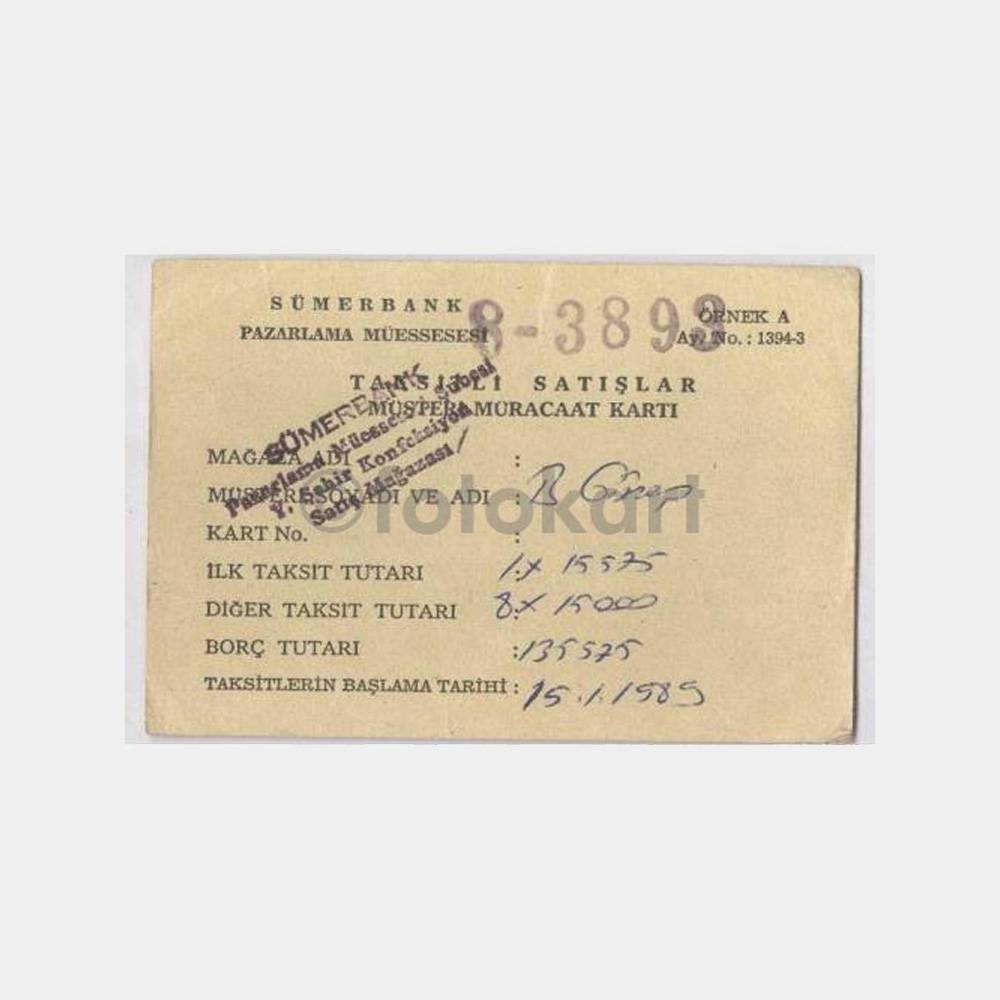 SÜMERBANK
PAZARLAMA MÜESSESESİ
8-3893
ÖRNEK A
Ay. No.: 1394-3
TAKSİTLİ SATIŞLAR
MÜŞTERİ MÜRACAAT KARTI
SÜMERBANK
Pazarlama Müessesesi Şubesi
Y. Şehir Konfeksiyon
Satış Mağazası
MAĞAZA ADI :
MÜŞTERİ SOYADI VE ADI : B
KART No. :
İLK TAKSİT TUTARI 1 x 15575
DİĞER TAKSİT TUTARI 8 x 15000
BORÇ TUTARI : 135575
TAKSİTLERİN BAŞLAMA TARİHİ : 15.1.1989
©fotokart